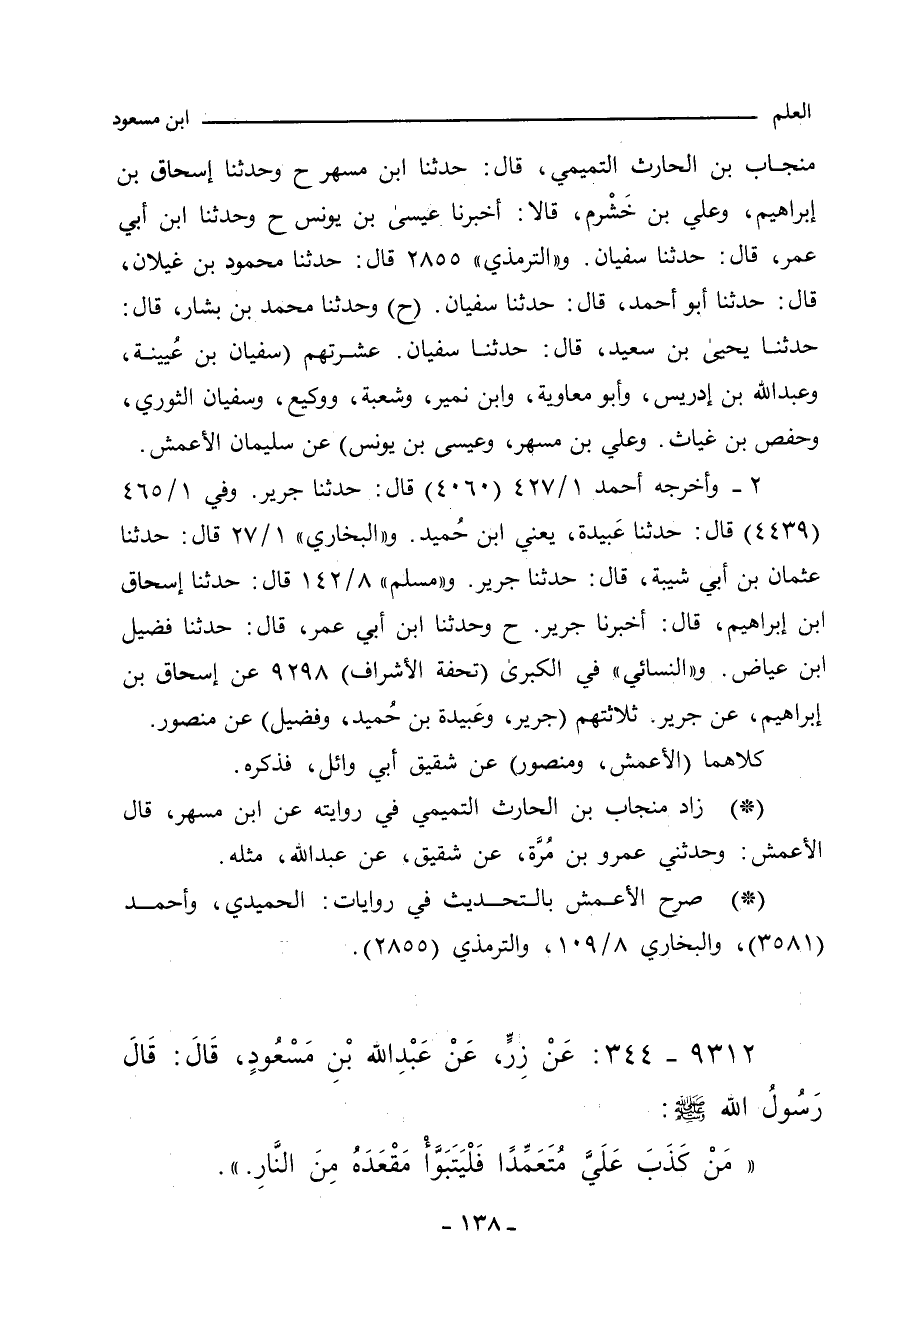 العلم ابن مسعود
منجاب بن الحارث التميمي، قال: حدثنا ابن مسهر ح وحدثنا إسحاق بن
إبراهيم، وعلي بن خَشْرم، قالا: أخبرنا عيسىٰ بن يونس ح وحدثنا ابن أبي
عمر، قال: حدثنا سفيان. و«الترمذي» ٢٨٥٥ قال: حدثنا محمود بن غيلان،
قال: حدثنا أبو أحمد، قال: حدثنا سفيان. (ح) وحدثنا محمد بن بشار، قال:
حدثنا يحيىٰ بن سعيد، قال: حدثنا سفيان. عشرتهم (سفيان بن عُيينة،
وعبدالله بن إدريس، وأبو معاوية، وابن نمير، وشعبة، ووكيع، وسفيان الثوري،
وحفص بن غياث. وعلي بن مسهر، وعيسى بن يونس) عن سليمان الأعمش.
٢ - وأخرجه أحمد ٤٢٧/١ (٤٠٦٠) قال: حدثنا جرير. وفي ٤٦٥/١
(٤٤٣٩) قال: حدثنا عَبيدة، يعني ابن حُميد. و«البخاري» ٢٧/١ قال: حدثنا
عثمان بن أبي شيبة، قال: حدثنا جرير. و«مسلم» ١٤٢/٨ قال: حدثنا إسحاق
ابن إبراهيم، قال: أخبرنا جرير. ح وحدثنا ابن أبي عمر، قال: حدثنا فضيل
ابن عياض. و«النسائي» في الكبرىٰ (تحفة الأشراف) ٩٢٩٨ عن إسحاق بن
إبراهيم، عن جرير. ثلاثتهم (جرير، وعَبيدة بن حُميد، وفضيل) عن منصور.
كلاهما (الأعمش، ومنصور) عن شقيق أبي وائل، فذكره.
(*) زاد منجاب بن الحارث التميمي في روايته عن ابن مسهر، قال
الأعمش: وحدثني عمرو بن مُرَّة، عن شقيق، عن عبدالله، مثله.
(*) صرح الأعمش بالتحديث في روايات: الحميدي، وأحمد
(٣٥٨١)، والبخاري ١٠٩/٨، والترمذي (٢٨٥٥).
٩٣١٢ - ٣٤٤: عَنْ زِرٍّ، عَنْ عَبْدِالله بْنِ مَسْعُودٍ، قَالَ: قَالَ
رَسُولُ الله ﷺ:
« مَنْ كَذَبَ عَلَيَّ مُتَعَمِّدًا فَلْيَتَبَوَّأْ مَقْعَدَهُ مِنَ النَّارِ. ».
- ١٣٨ -